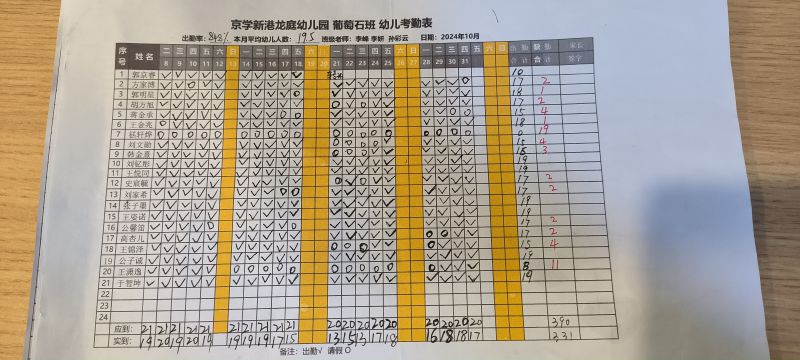 京学新港龙庭幼儿园 葡萄石班 幼儿考勤表
出勤率: 84.8% 本月平均幼儿人数: 19.5 班级老师: 李峰 李妍 孙彩云 日期: 2024年10月
序号 姓名 二 三 四 五 六 日 一 二 三 四 五 六 日 一 二 三 四 五 六 日 一 二 三 四 五 六 日 出勤合计 缺勤合计 家长签字
8 9 10 11 12 13 14 15 16 17 18 19 20 21 22 23 24 25 26 27 28 29 30 31
1 郭京睿 10
2 方家博 17 2
3 郭明星 18 1
4 胡方旭 17 2
5 蒋金承 15 4
6 王金兆 18 1
7 0 19
8 刘文勋 15 4
9 韩金熹 3
10 19
11 王悦同 19
12 史宸毓 17 2
13 刘家希 17 2
14 张子墨 19
15 王姿诺 17 2
16 公馨笛 17 2
17 高杏儿
18 王锦泽 15 4
19 公子诚 19
20 王潇逸 8 11
21 于智坤 19
22
23
24
应到: 21 21 21 21 21 21 21 21 21 21 20 20 20 20 20 20 20 20 20 390
实到: 331
备注: 出勤√ 请假 O